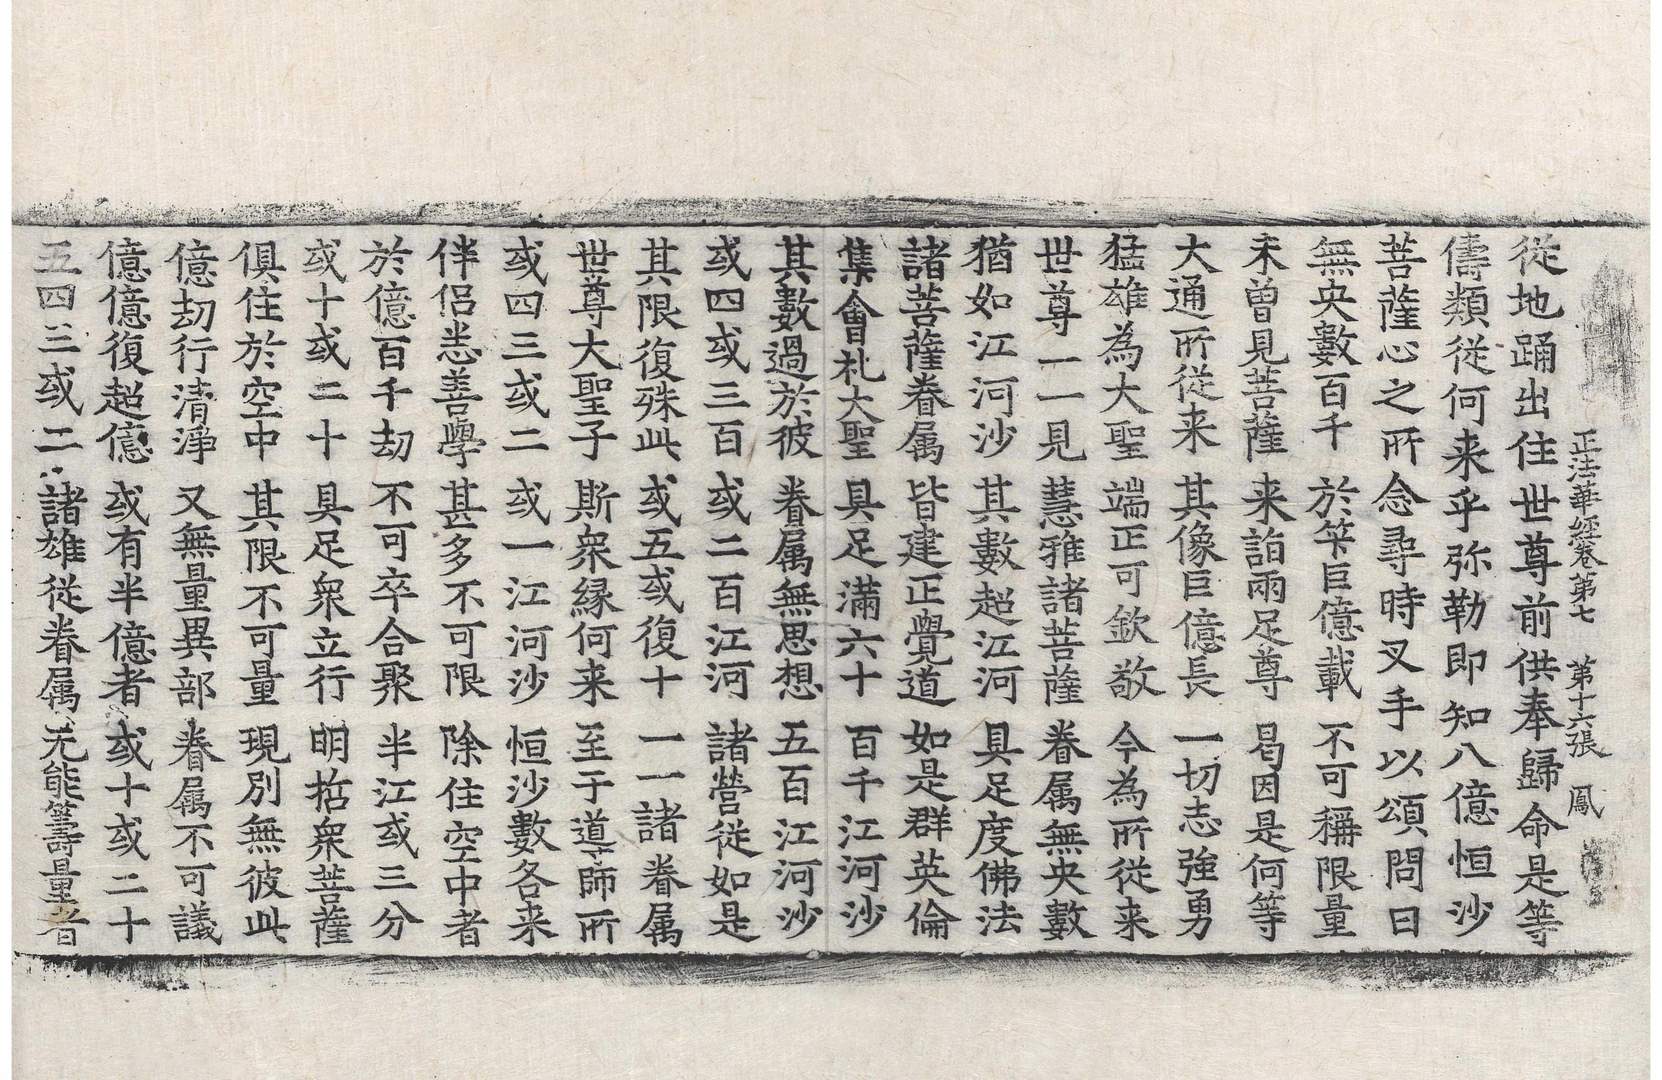 正法華經卷第七 第十六張 鳳
從地踊出住世尊前供奉歸命是等
儔類從何来乎弥勒即知八億恒沙
菩薩心之所念尋時叉手以頌問曰
無央數百千 於笇巨億載 不可稱限量
未曾見菩薩 来詣兩足尊 曷因是何等
大通所從来 其像巨億長 一切志強勇
猛雄為大聖 端正可欽敬 今為所從来
世尊一一見 慧雅諸菩薩 眷属無央數
猶如江河沙 其數超江河 具足度佛法
諸菩薩眷属 皆建正覺道 如是群英倫
集會札大聖 具足滿六十 百千江河沙
其數過於彼 眷属無思想 五百江河沙
或四或三百 或二百江河 諸營從如是
其限復殊此 或五或復十 一一諸眷属
世尊大聖子 斯衆縁何来 至于道師所
或四三或二 或一江河沙 恒沙數各来
伴侣恙善學 甚多不可限 除住空中者
於億百千劫 不可卒合聚 半江或三分
或十或二十 具足衆立行 明哲衆菩薩
俱住於空中 其限不可量 現別無彼此
億劫行清淨 又無量異部 眷属不可議
億億復超億 或有半億者 或十或二十
五四三或二 諸雄從眷属 无能籌量者